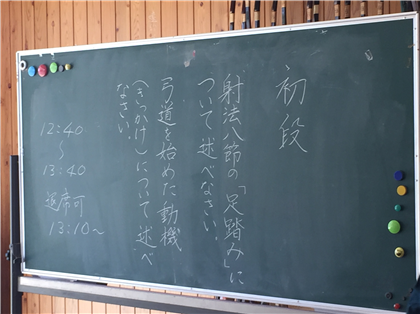 初段
射法八節の「足踏み」に
ついて述べなさい。
弓道を始めた動機
(きっかけ)について述べ
なさい。
12:40
〜
13:40
退席可
13:10〜